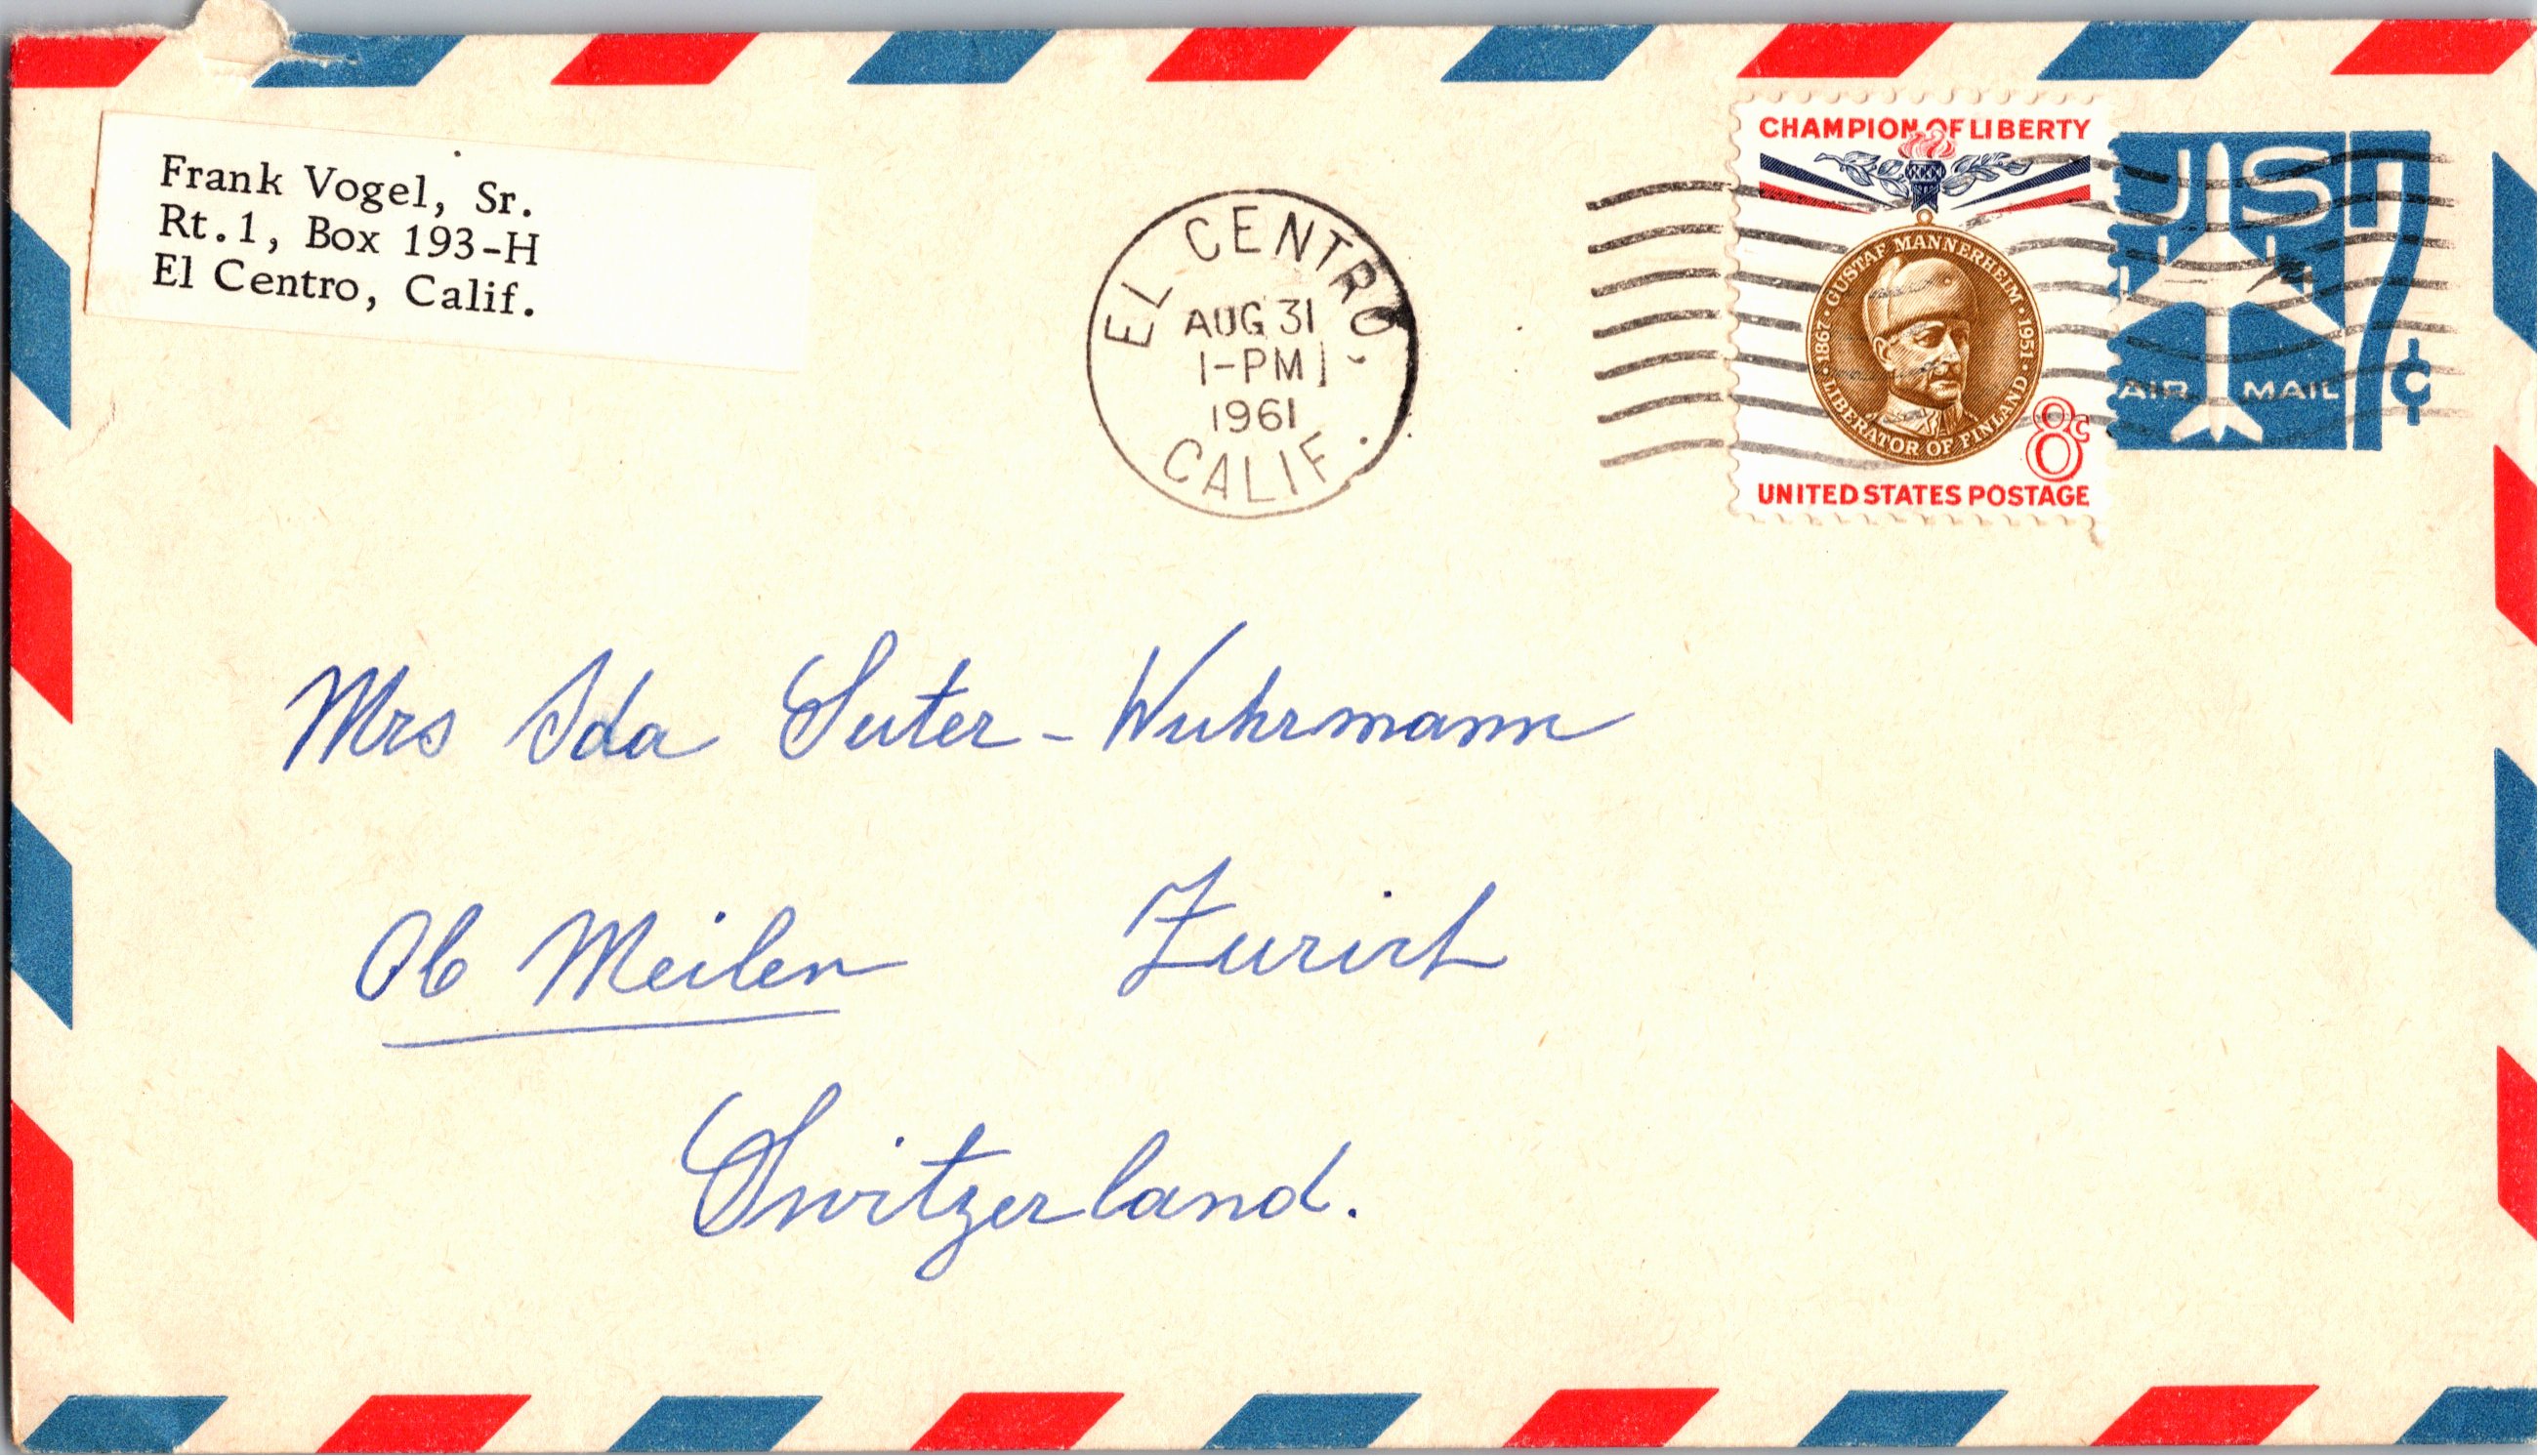 Frank Vogel, Sr.
Rt.1, Box 193-H
El Centro, Calif.
EL CENTRO,
AUG 31
1-PM
1961
CALIF.
CHAMPION OF LIBERTY
1867 · GUSTAF MANNERHEIM · 1951
LIBERATOR OF FINLAND
8c
UNITED STATES POSTAGE
US
AIR MAIL
7¢
Mrs Ida Suter-Wuhrmann
Ob Meilen Zurich
Switzerland.